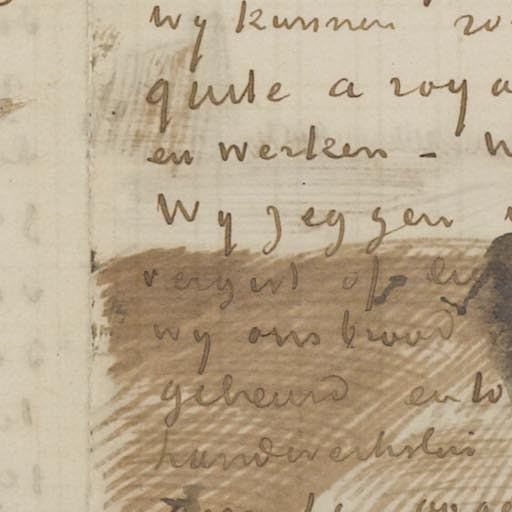 Wy kunnen zo
quite a roya
en werken - W
Wy zeggen
vergist of
wy ons brood
gebeurd en
handwerkslui